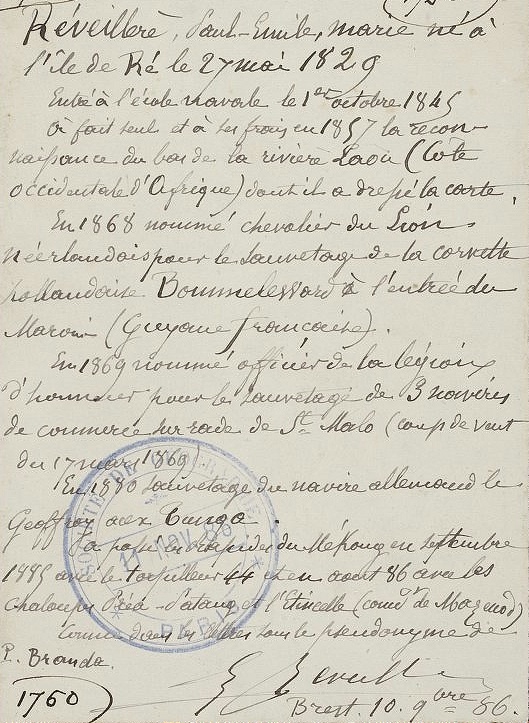 Réveillère, Paul-Emile, marie né à
l'île de Ré le 27 mai 1829
Entré à l'école navale le 1er octobre 1845
a fait seul et à ses frais en 1857 la recon-
naissance du bas de la rivière Laou (Côte
occidentale d'Afrique) dont il a dressé la carte.
En 1868 nommé chevalier du Lion
néerlandais pour le sauvetage de la corvette
hollandaise Bommelessard à l'entrée du
Maroni (Guyane française).
En 1869 nommé officier de la légion
d'honneur pour le sauvetage de 3 navires
de commerce sur rade de St Malo (coup de vent
du 17 mars 1869)
En 1880 sauvetage du navire allemand le
Geoffroy aux
a passé les rapides du Mékong en septembre
1885 avec le torpilleur 44 et en août 86 avec les
chaloupes et l'Etincelle
Connu dans les lettres sous le pseudonyme de
P. Branda.
Brest. 10. 9bre 86.
1760
SOCIÉTÉ DE
PARIS